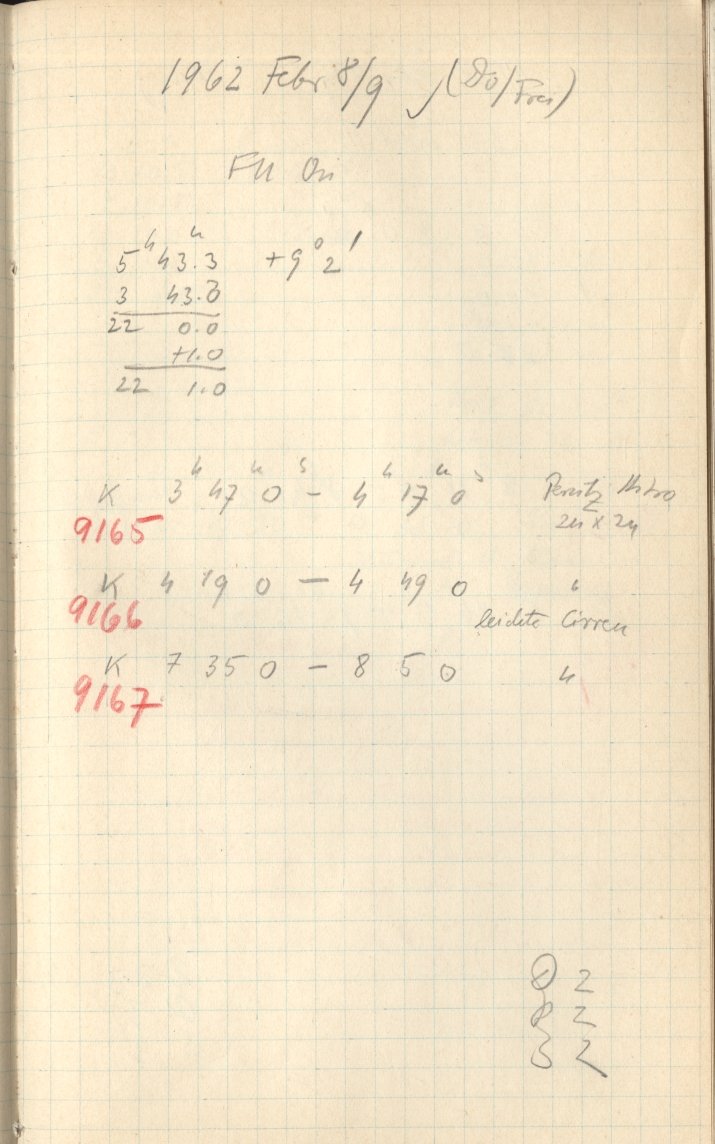 1962 Febr 8/9 (Do/Frei)
FU Ori
5ʰ 43.3ᵐ +9° 2'
3 43.3
22 0.0
+1.0
22 1.0
K 3ʰ 47ᵐ 0ˢ – 4ʰ 17ᵐ 0ˢ Perutz
9165
K 4 19 0 – 4 49 0 "
9166
leichte Cirren
K 7 35 0 – 8 5 0 "
9167
2
2
2